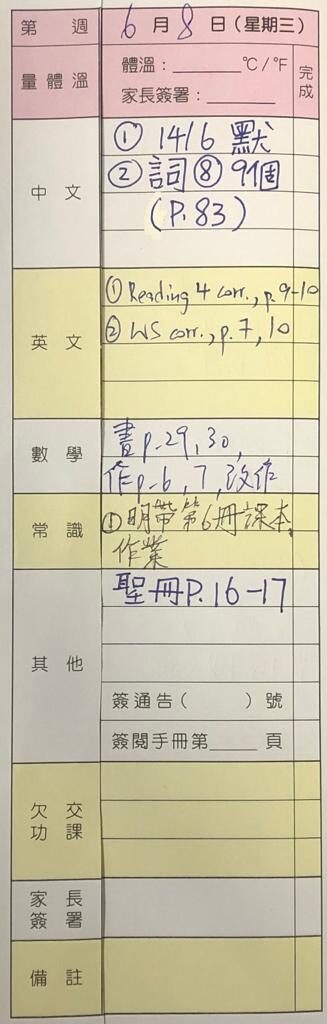 第 週 6 月 8 日 (星期三)
量體溫 體溫：______ °C/°F 完成
家長簽署：______
中文 ① 14/6 默
② 詞⑧ 9個
(P.83)
英文 ① Reading 4 corr., p.9-10
② WS corr., p.7, 10
數學 書p.29, 30,
作p.6, 7, 改作
常識 ① 明帶第6冊課本,
作業
其他 聖冊P.16-17
簽通告( )號
簽閱手冊第____頁
欠交功課
家長簽署
備註